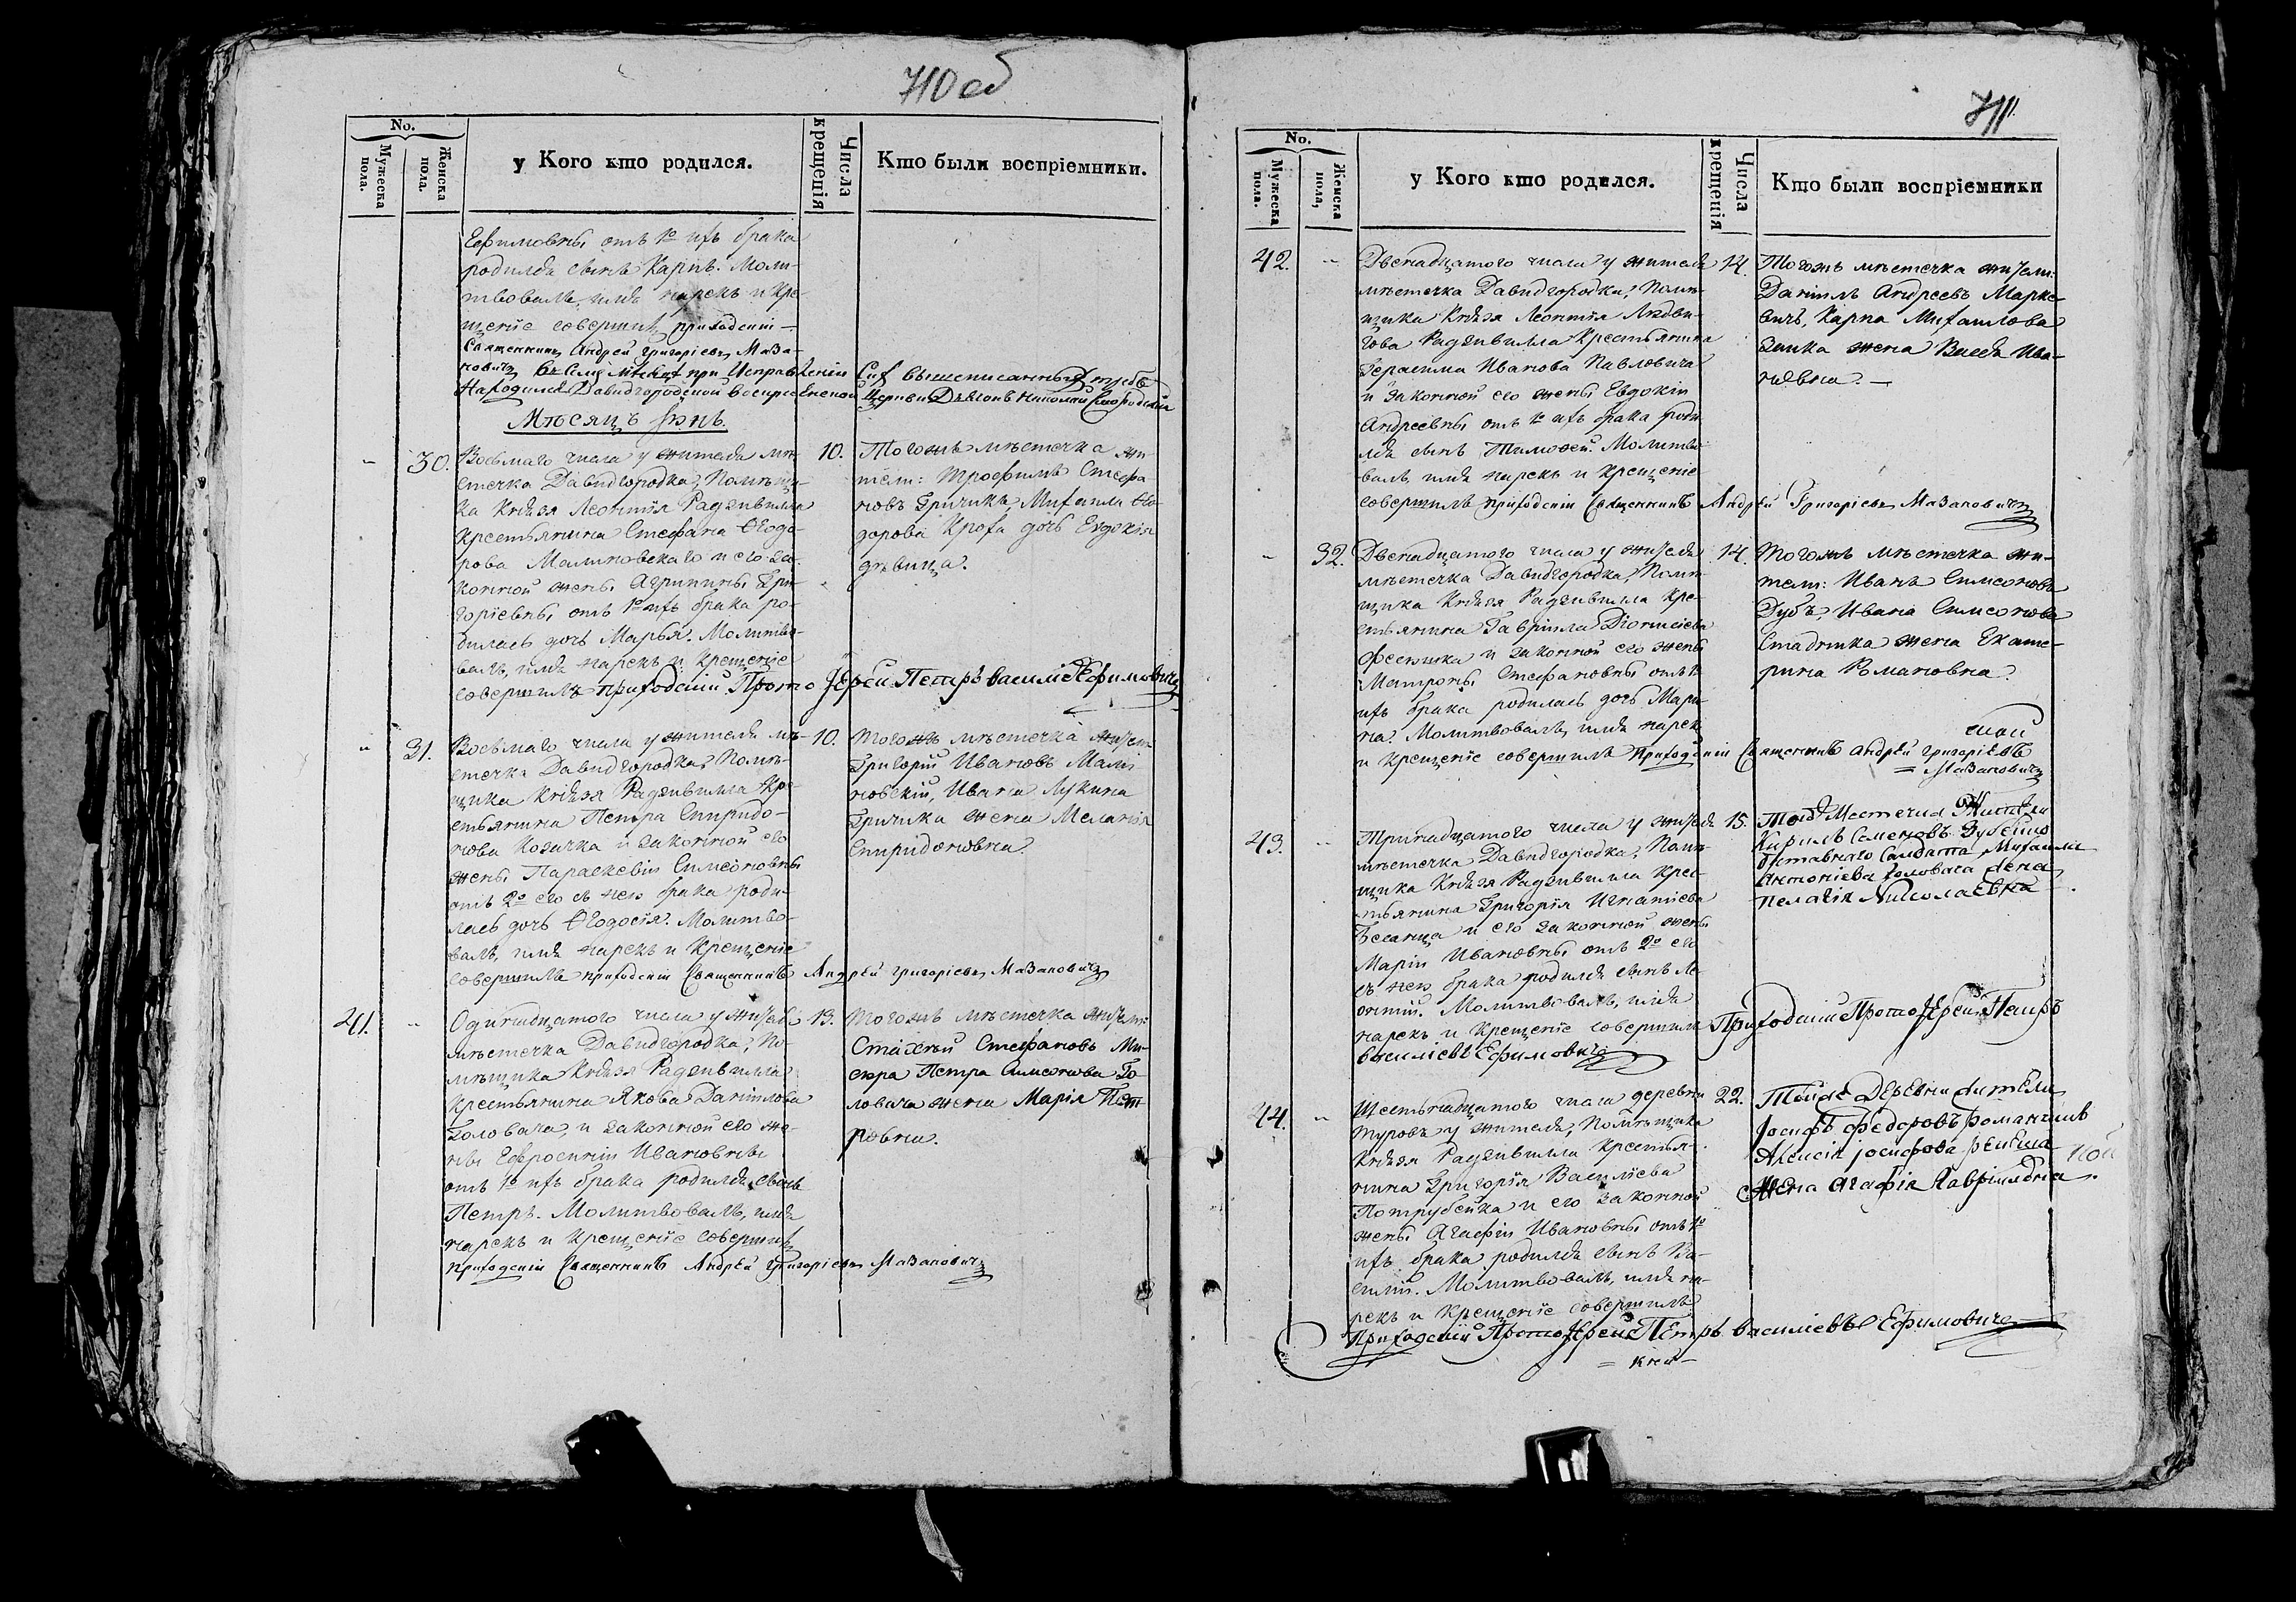 710 об
No.
Мужеска пола.
Женска пола.
у Кого кто родился.
Числа крещенія
Кто были воспріемники.
Ефимовны отъ 1го ихъ брака
родился сынъ Карпъ. Моли-
твовалъ, имя нарекъ и кре-
щеніе совершилъ приходскій
Священникъ Андрей Григоріевъ Маза-
новичъ въ семъ мѣсяцѣ при Исправленіи Сихъ вышеписанныхъ требъ
Находился Давидгородской воскресенской Церкви Дьячокъ Николай
Мѣсяцъ Іюнь.
30.
Восьмаго числа у жителя мѣ-
стечка Давидгородка, Помѣщи-
ка Князя Леонтія Радзивилла
крестьянина Стефана Ѳеодо-
рова Малиновскаго и его за-
конной жены Агрипины Гри-
горіевны, отъ 1го ихъ брака ро-
дилась дочь Марья. Молитво-
валъ, имя нарекъ и крещеніе
совершилъ приходскій Прото Іерей Петръ Василіевъ Ефимовичъ
10.
Тогожъ мѣстечка жи-
тели: Трофимъ Стефа-
новъ Гричикъ, Михаила Ѳео-
дорова Кроха дочь Евдокія
дѣвица.
31.
Восьмаго числа у жителя мѣ-
стечка Давидгородка, Помѣ-
щика Князя Радзивилла кре-
стьянина Петра Спиридо-
нова Козачка и законной его
жены Параскевіи Симеоновны
отъ 2го его съ нею брака роди-
лась дочь Ѳеодосія. Молитво-
валъ, имя нарекъ и крещеніе
совершилъ приходскій Священникъ Андрей Григоріевъ Мазановичъ
10.
Тогожъ мѣстечка жители
Григорій Ивановъ Мали-
новскій, Ивана Лукина
Гричика жена Меланія
Спиридоновна.
41.
Одинадцатого числа у жителя
мѣстечка Давидгородка, По-
мѣщика Князя Радзивилла
крестьянина Якова Данилова
Головача, и законной его же-
ны Ефросиніи Ивановны
отъ 1го ихъ брака родился сынъ
Петръ. Молитвовалъ, имя
нарекъ и крещеніе совершилъ
приходскій Священникъ Андрей Григоріевъ Мазановичъ
13.
Тогожъ мѣстечка жители
Стахѣй Стефановъ Ми-
сюра Петра Симеонова Го-
ловача жена Марія Пет-
ровна.
711
No.
Мужеска пола.
Женска пола,
у Кого кто родился.
Числа крещенія
Кто были воспріемники
42.
Двенадцатого числа у жителя
мѣстечка Давидгородка, Помѣ-
щика Князя Леонтія Людви-
гова Радзивилла крестьянина
Герасима Иванова Павловича
и законной его жены Евдокіи
Андреевны отъ 1го ихъ брака роди-
лся сынъ Тимоѳей. Молитво-
валъ, имя нарекъ и крещеніе
совершилъ приходскій Священникъ Андрей Григоріевъ Мазановичъ
14.
Тогожъ мѣстечка жители:
Даніилъ Андреевъ Марке-
вичъ, Карпа Михаилова
Заика жена Васса Ива-
новна.
32.
Двенадцатого числа у жителя
мѣстечка Давидгородка, Помѣ-
щика Князя Радзивилла кре-
стьянина Гавріила Діонисіева
Фесюшка и законной его жены
Матроны Стефановны отъ 1
ихъ брака родилась дочь Мари-
на. Молитвовалъ, имя нарекъ
и крещеніе совершилъ приходскій Священникъ Андрей Григоріевъ
Мазановичъ
14.
Тогожъ мѣстечка жи-
тели: Иванъ Симеоновъ
Дубъ, Ивана Симеонова
Стадника жена Екате-
рина Романовна.
43.
Тринадцатого числа у жителя
мѣстечка Давидгородка, Помѣ-
щика Князя Радзивилла крес-
тьянина Григорія Игнатіева
Бесанца и его законной жены
Маріи Ивановны отъ 2го его
съ нею брака родился сынъ Ле-
онтій. Молитвовалъ, имя
нарекъ и крещеніе совершилъ Приходскій Прото Іерей Петръ
Василіевъ Ефимовичъ
15.
Тогожъ Местечка Жители
Кирилъ Семеновъ
Отставнаго Солдата Михаила
Антоніева Головача жена
Пелагія Николаевна
44.
Шестьнадцатого числа деревни
Туровъ у жителя, Помѣщика
Князя Радзивилла крестья-
нина Григорія Василіева
Потрубейка и его законной
жены Агафіи Ивановны отъ 1го
ихъ брака родился сынъ Ва-
силій. Молитвовалъ, имя на-
рекъ и крещеніе совершилъ
Приходскій Прото Іерей Петръ Василіевъ Ефимовичъ
22.
Тойже Деревни жители
Іосифъ Федоровъ Романчикъ
Алексія Іосифова
Жена Агафія Гавріиловна.